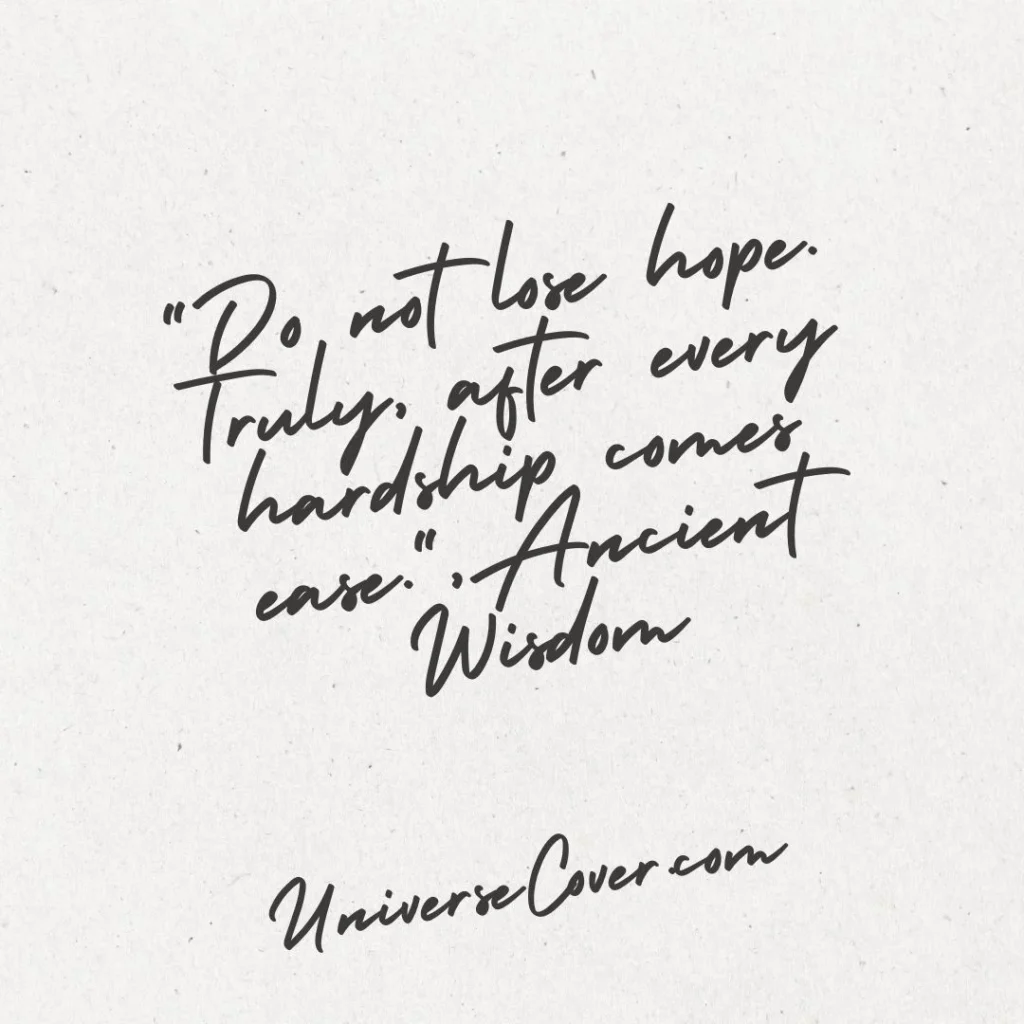 "Do not lose hope.
Truly, after every
hardship comes
ease.", Ancient
Wisdom
UniverseCover.com